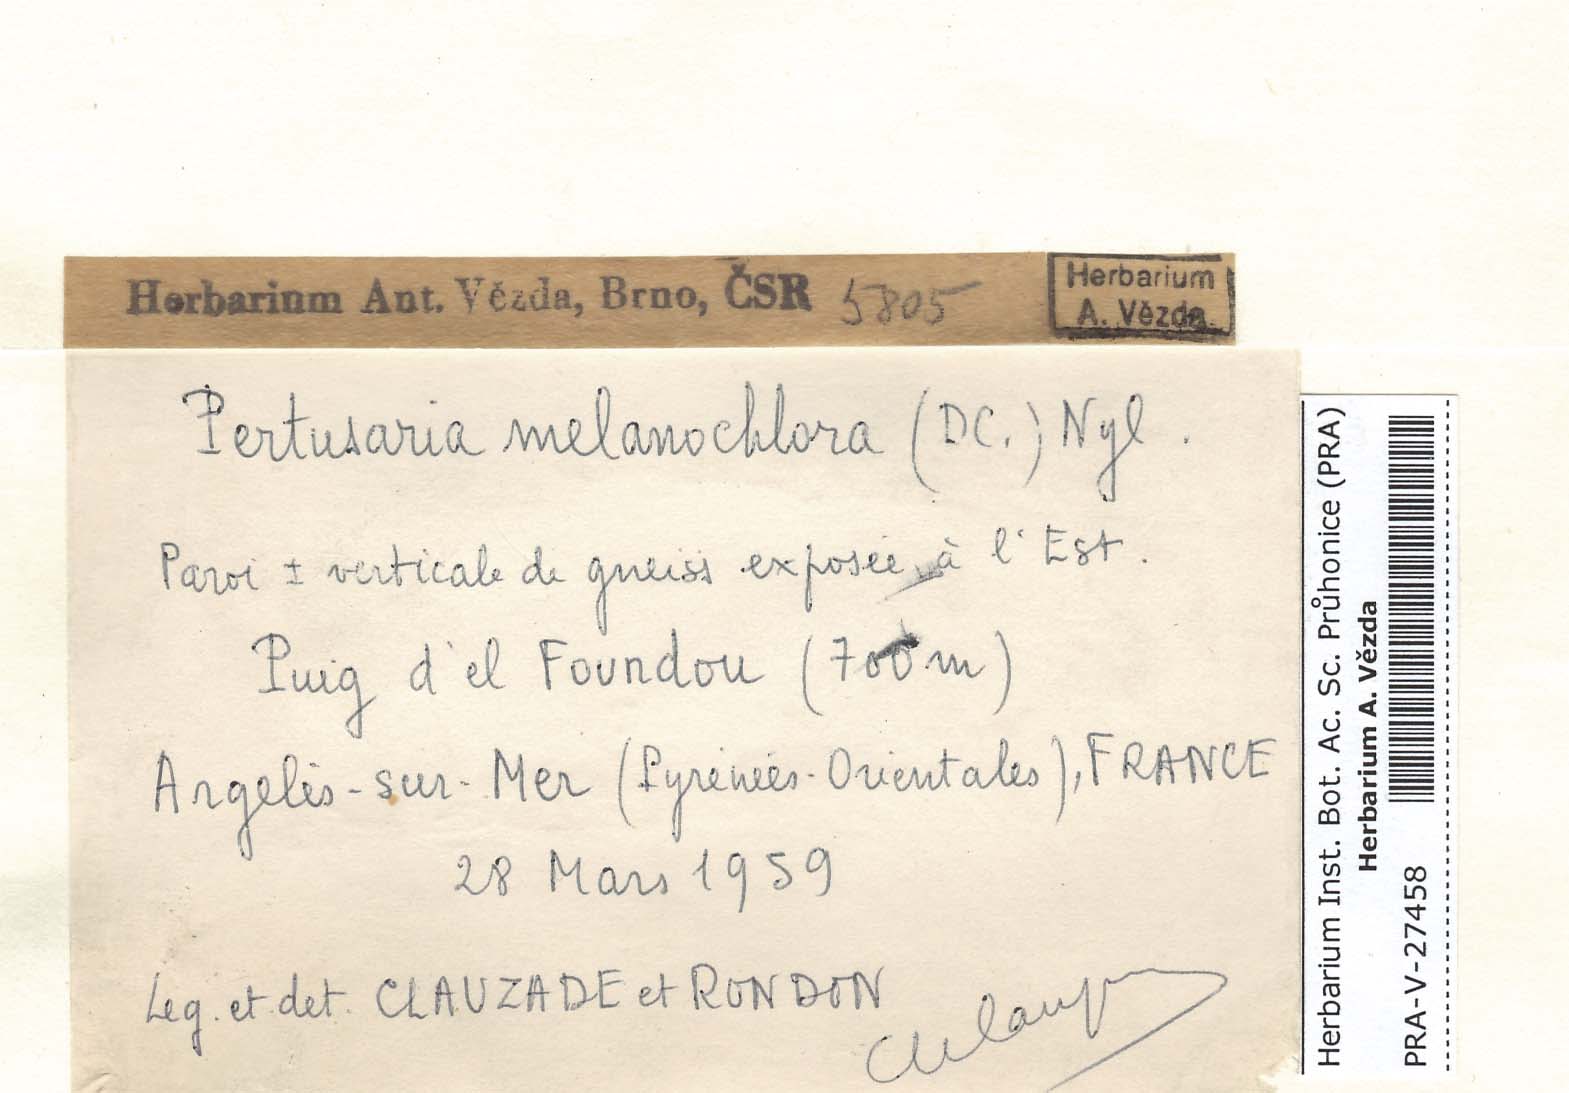 Herbarium Ant. Vězda, Brno, ČSR 5805
Herbarium
A. Vězda
Pertusaria melanochlora (DC.) Nyl.
Paroi ± verticale de gneiss exposée à l'Est.
Puig d'el Foundou (700 m)
Argelès-sur-Mer (Pyrénées-Orientales), FRANCE
28 Mars 1959
Leg. et det. CLAUZADE et RONDON
Herbarium Inst. Bot. Ac. Sc. Průhonice (PRA)
Herbarium A. Vězda
PRA-V-27458